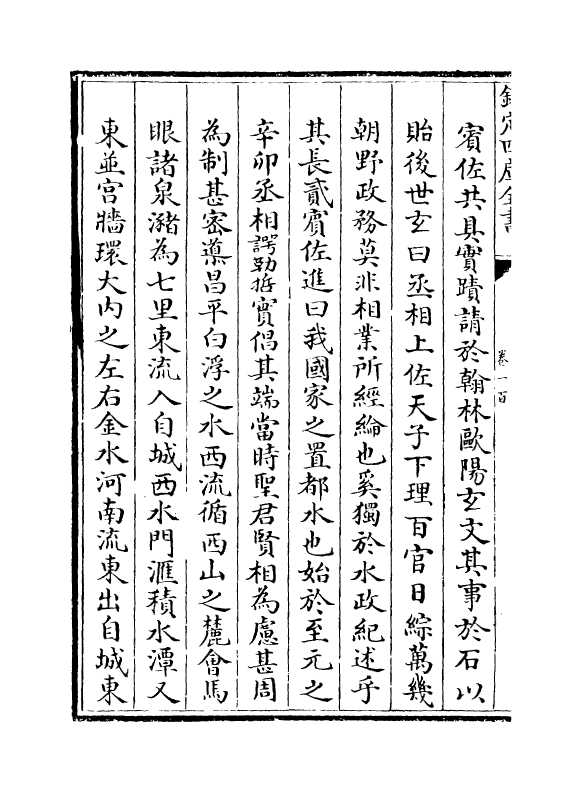 欽定四庫全書
卷一百
賓佐共具實蹟請於翰林歐陽玄文其事於石以
貽後世玄曰丞相上佐天子下理百官日綜萬幾
朝野政務莫非相業所經綸也奚獨於水政紀述乎
其長貳賓佐進曰我國家之置都水也始於至元之
辛卯丞相諤勒哲實倡其端當時聖君賢相為慮甚周
為制甚密導昌平白浮之水西流循西山之麓會馬
眼諸泉瀦為七里東流入自城西水門滙積水潭又
東並宮牆環大内之左右金水河南流東出自城東